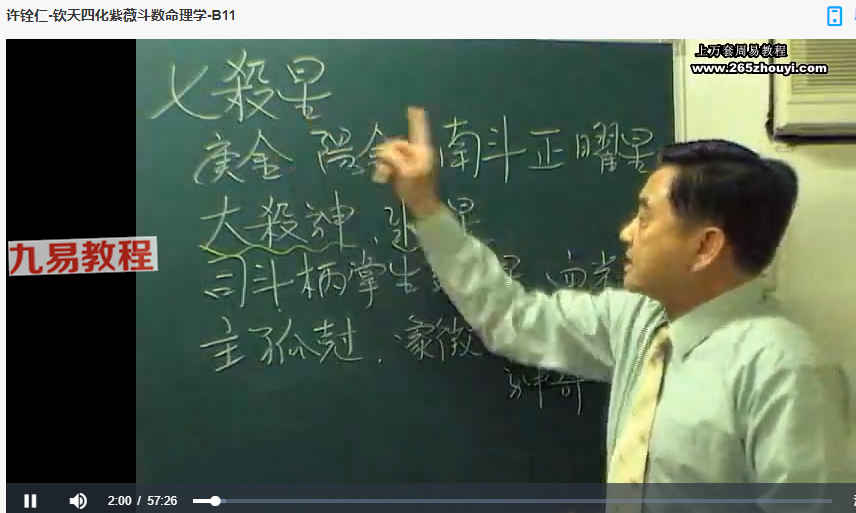 许铨仁-钦天四化紫薇斗数命理学-B11
上万套周易教程
www.265zhouyi.com
七殺星
庚金 陽金 南斗正曜星
大殺神、
九易教程
司斗柄掌生
主孤剋、象徵
2:00 / 57:26